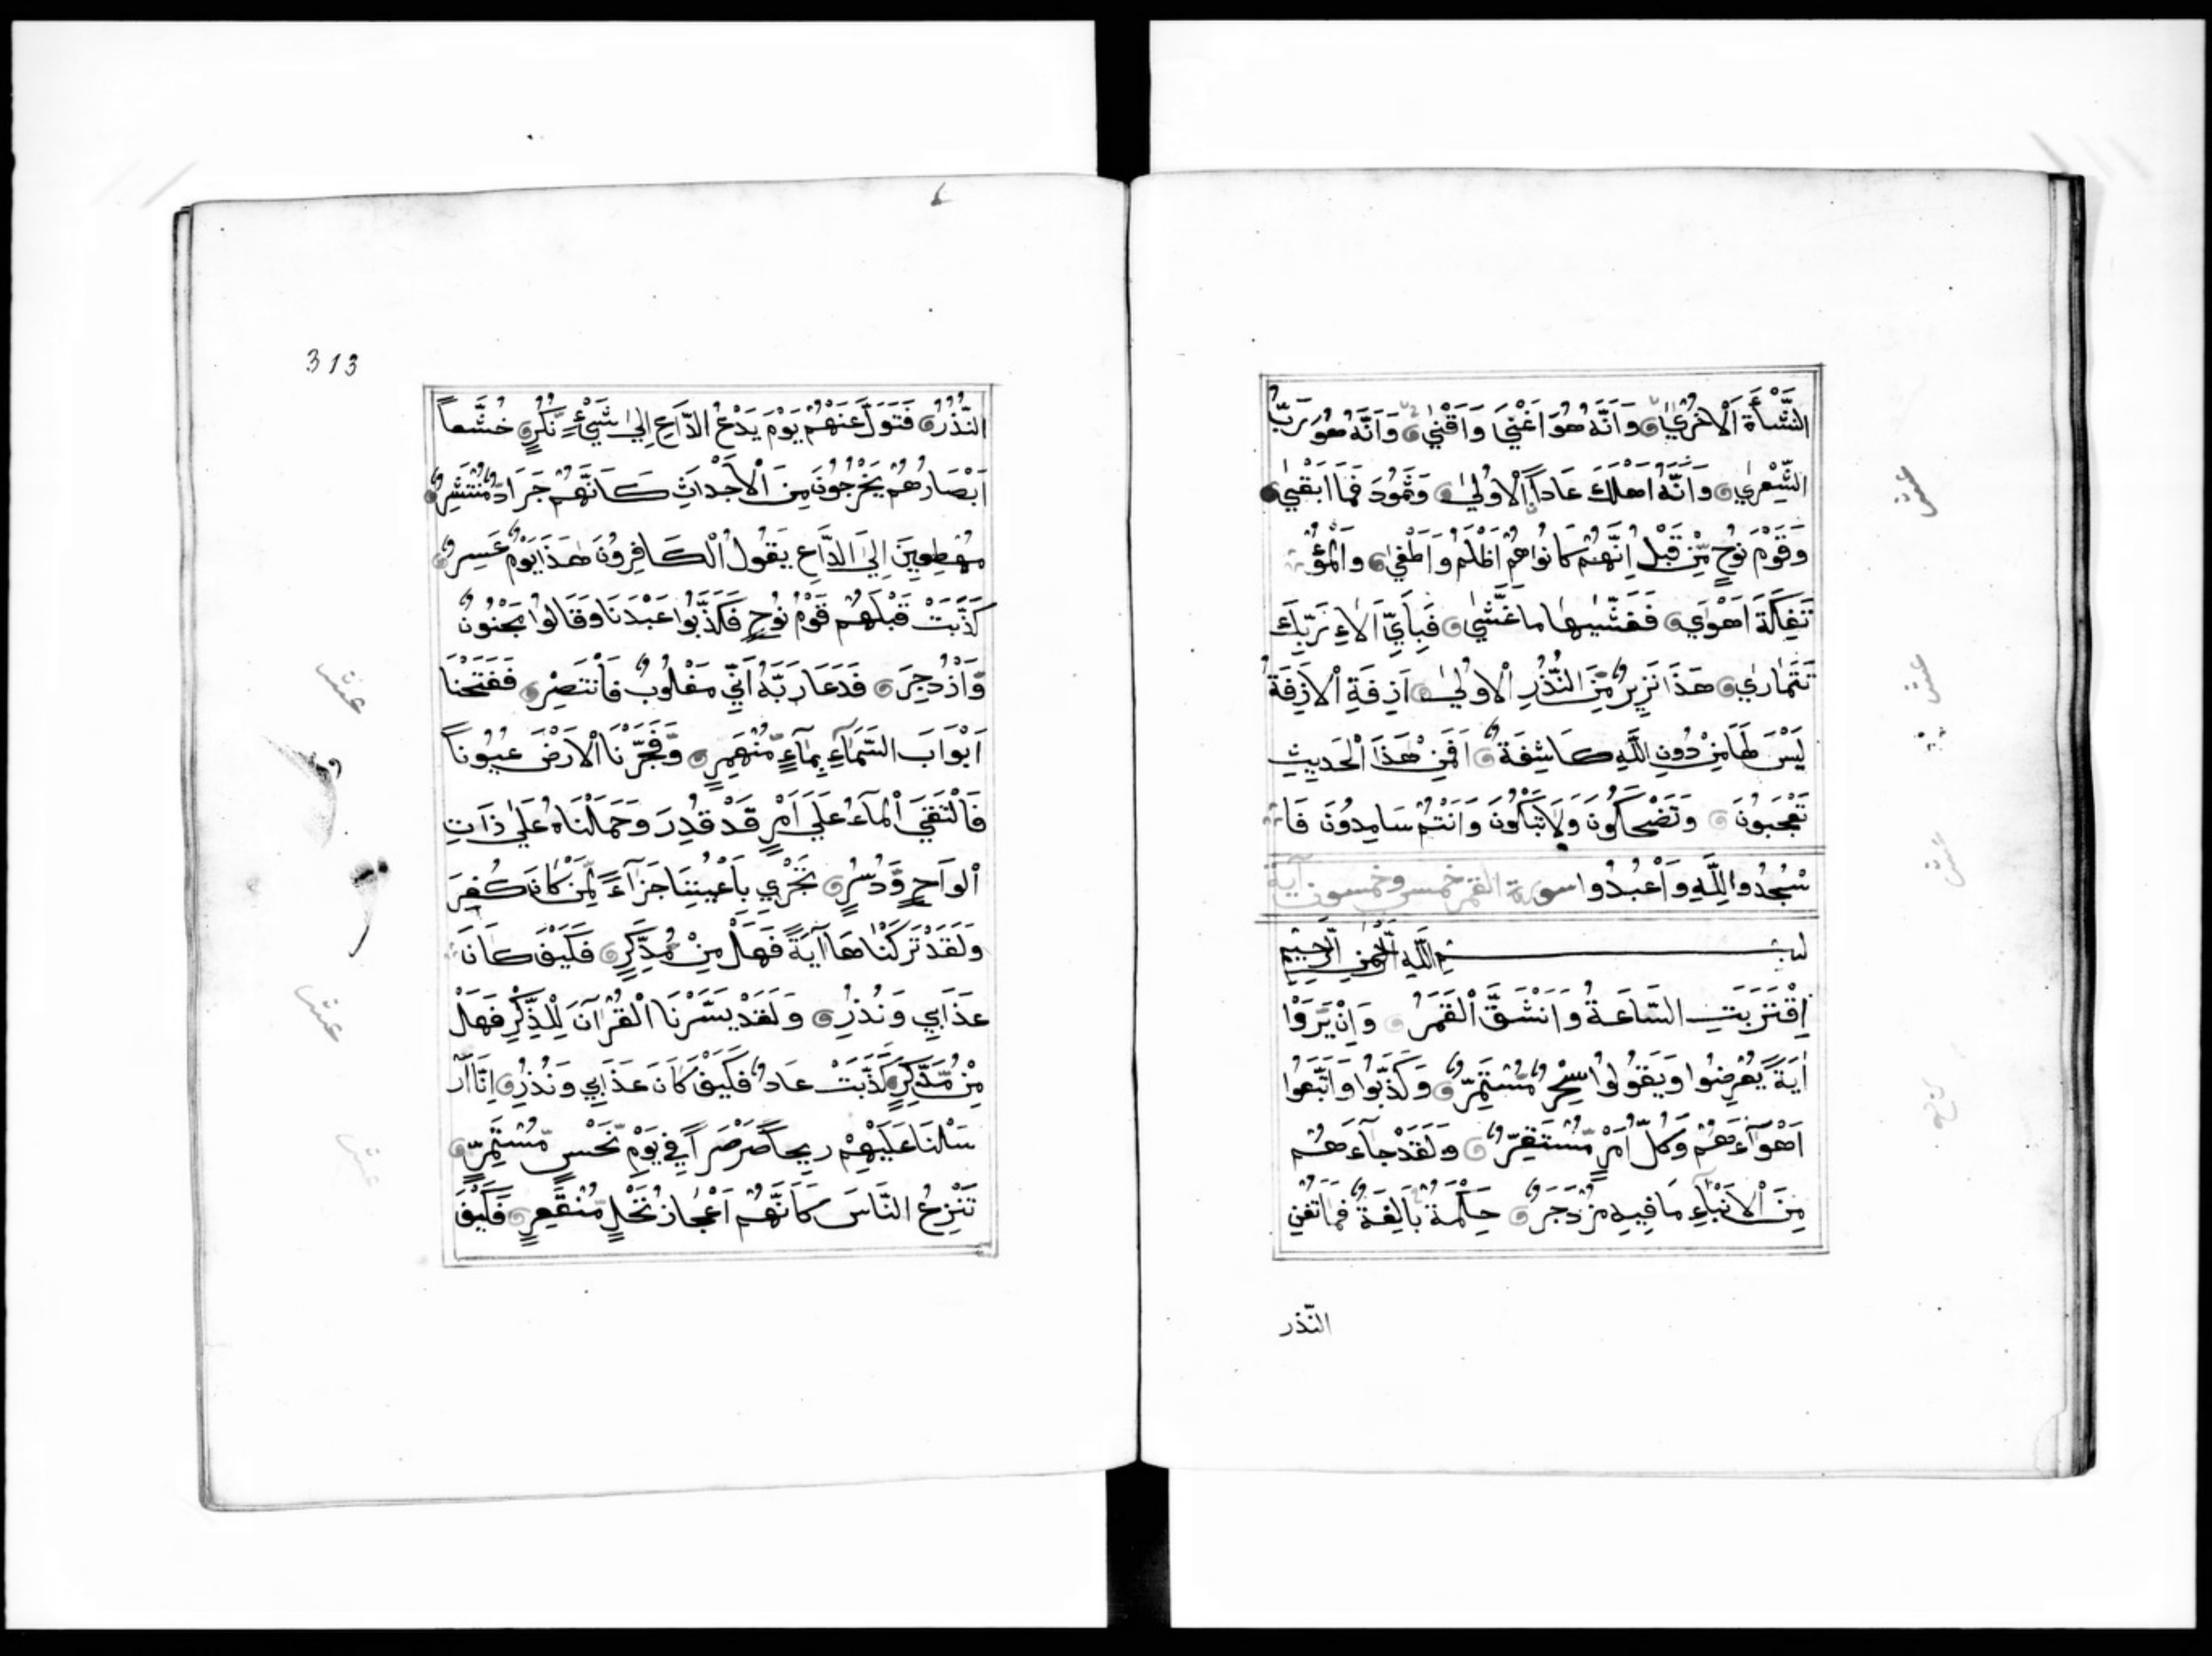 النَّشْأَةَ الْاُخْرٰي وَاَنَّهُ هُوَ اَغْنَي وَاَقْنٰي وَاَنَّهُ هُوَ رَبُّ
الشِّعْرٰي وَاَنَّهُ اَهْلَكَ عَاداً الْاُولٰي وَثَمُودَ فَمَا اَبْقٰي
وَقَوْمَ نُوحٍ مِّنْ قَبْلُ اِنَّهُمْ كَانُوا هُمْ اَظْلَمُ وَاَطْغٰي وَالْمُؤْ
تَفِكَةَ اَهْوٰي فَغَشّٰيهَا مَا غَشّٰي فَبِاَيِّ اٰلَاءِ رَبِّكَ
تَتَمَارٰي هَذَا نَذِيرٌ مِّنَ النُّذُرِ الْاُولٰي اَزِفَةِ الْاَزِفَةُ
لَيْسَ لَهَا مِنْ دُونِ اللَّهِ كَاشِفَةٌ اَفَمِنْ هٰذَا الْحَدِيثِ
تَعْجَبُونَ وَتَضْحَكُونَ وَلَا تَبْكُونَ وَاَنْتُمْ سَامِدُونَ فَا
سْجُدُوا لِلَّهِ وَاعْبُدُوا سورة القمر خمس وخمسون آية
بسم اللّه الرَّحْمٰنِ الرَّحِيمِ
اِقْتَرَبَتِ السَّاعَةُ وَانْشَقَّ الْقَمَرُ وَاِنْ يَّرَوْا
اٰيَةً يُّعْرِضُوا وَيَقُولُوا سِحْرٌ مُّسْتَمِرٌّ وَكَذَّبُوا وَاتَّبَعُوا
اَهْوَآءَهُمْ وَكُلُّ اَمْرٍ مُّسْتَقِرٌّ وَلَقَدْ جَآءَهُمْ
مِنَ الْاَنْبَآءِ مَا فِيهِ مُزْدَجَرٌ حِكْمَةٌ بَالِغَةٌ فَمَا تُغْنِ
النّذر
313
النُّذُرُ فَتَوَلَّ عَنْهُمْ يَوْمَ يَدْعُ الدَّاعِ اِلٰي شَيْءٍ نُّكُرٍ خُشَّعاً
اَبْصَارُهُمْ يَخْرُجُونَ مِنَ الْاَجْدَاثِ كَاَنَّهُمْ جَرَادٌ مُّنْتَشِرٌ
مُّهْطِعِينَ اِلَي الدَّاعِ يَقُولُ الْكَافِرُونَ هٰذَا يَوْمٌ عَسِرٌ
كَذَّبَتْ قَبْلَهُمْ قَوْمُ نُوحٍ فَكَذَّبُوا عَبْدَنَا وَقَالُوا مَجْنُونٌ
وَّازْدُجِرَ فَدَعَا رَبَّهُ اَنِّي مَغْلُوبٌ فَانْتَصِرْ فَفَتَحْنَا
اَبْوَابَ السَّمَآءِ بِمَآءٍ مُّنْهَمِرٍ وَّفَجَّرْنَا الْاَرْضَ عُيُوناً
فَالْتَقَي الْمَآءُ عَلٰي اَمْرٍ قَدْ قُدِرَ وَحَمَلْنَاهُ عَلٰي ذَاتِ
اَلْوَاحٍ وَّدُسُرٍ تَجْرِي بِاَعْيُنِنَا جَزَآءً لِّمَنْ كَانَ كُفِرَ
وَلَقَدْ تَرَكْنَاهَا اٰيَةً فَهَلْ مِنْ مُّدَّكِرٍ فَكَيْفَ كَانَ
عَذَابِي وَنُذُرِ وَلَقَدْ يَسَّرْنَا الْقُرْآنَ لِلذِّكْرِ فَهَلْ
مِنْ مُّدَّكِرٍ كَذَّبَتْ عَادٌ فَكَيْفَ كَانَ عَذَابِي وَنُذُرِ اِنَّا اَرْ
سَلْنَا عَلَيْهِمْ رِيحاً صَرْصَراً فِي يَوْمِ نَحْسٍ مُّسْتَمِرٍّ
تَنْزِعُ النَّاسَ كَاَنَّهُمْ اَعْجَازُ نَخْلٍ مُّنْقَعِرٍ فَكَيْفَ
عشر
عشر
عشر